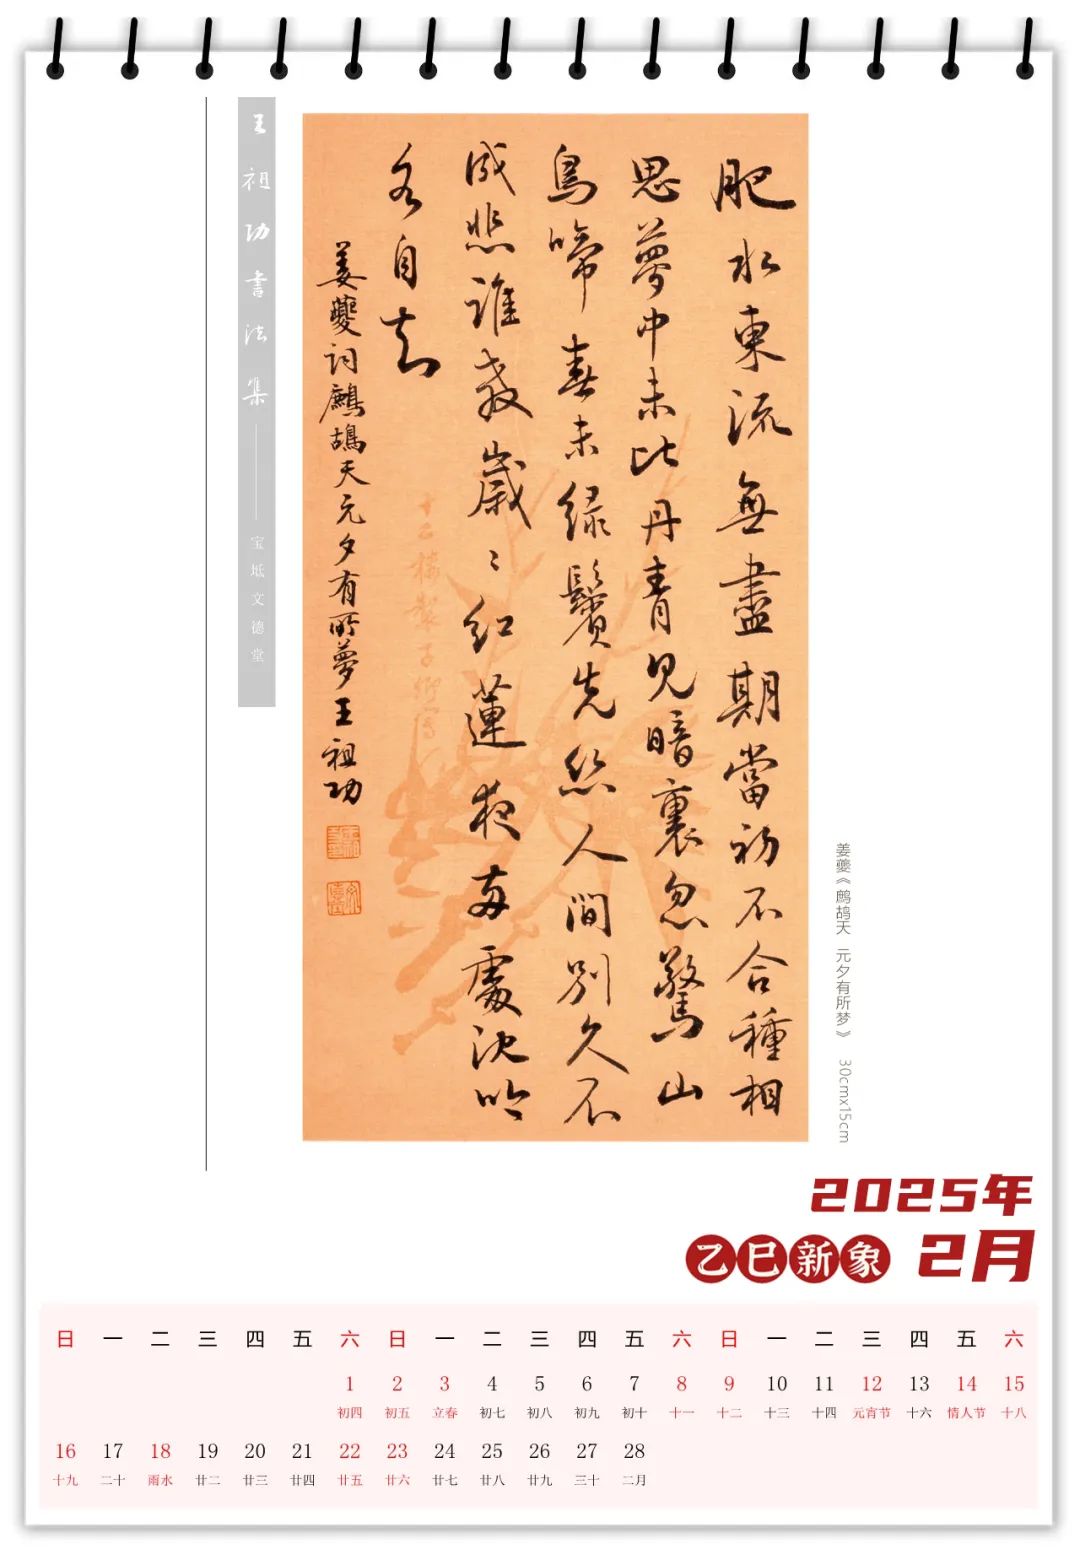 王祖功書法集
宝坻文德堂
肥水東流無盡期當初不合種相
思夢中未比丹青見暗裏忽驚山
鳥啼春未緑鬢先絲人間別久不
成悲誰教歲〻紅蓮夜兩處沈吟
各自知
姜夔词鷓鴣天元夕有所夢王祖功
姜夔《鹧鸪天 元夕有所梦》 30cmx15cm
2025年
乙巳新象 2月
日 一 二 三 四 五 六 日 一 二 三 四 五 六 日 一 二 三 四 五 六
1 2 3 4 5 6 7 8 9 10 11 12 13 14 15
初四 初五 立春 初七 初八 初九 初十 十一 十二 十三 十四 元宵节 十六 情人节 十八
16 17 18 19 20 21 22 23 24 25 26 27 28
十九 二十 雨水 廿二 廿三 廿四 廿五 廿六 廿七 廿八 廿九 三十 二月